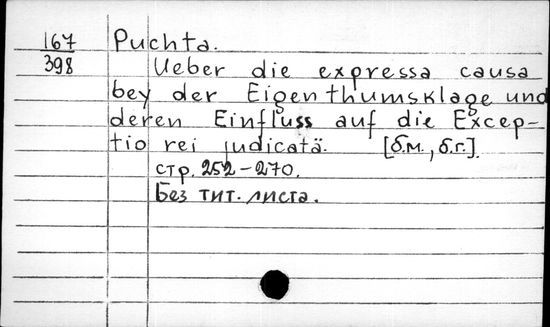 167 Puchta.
398 Ueber die expressa causa
bey der Eigenthumsklage und
deren Einfluss auf die Excep-
tio rei judicatä. [б.м., б.г.].
стр. 252-270.
Без тит. листа.